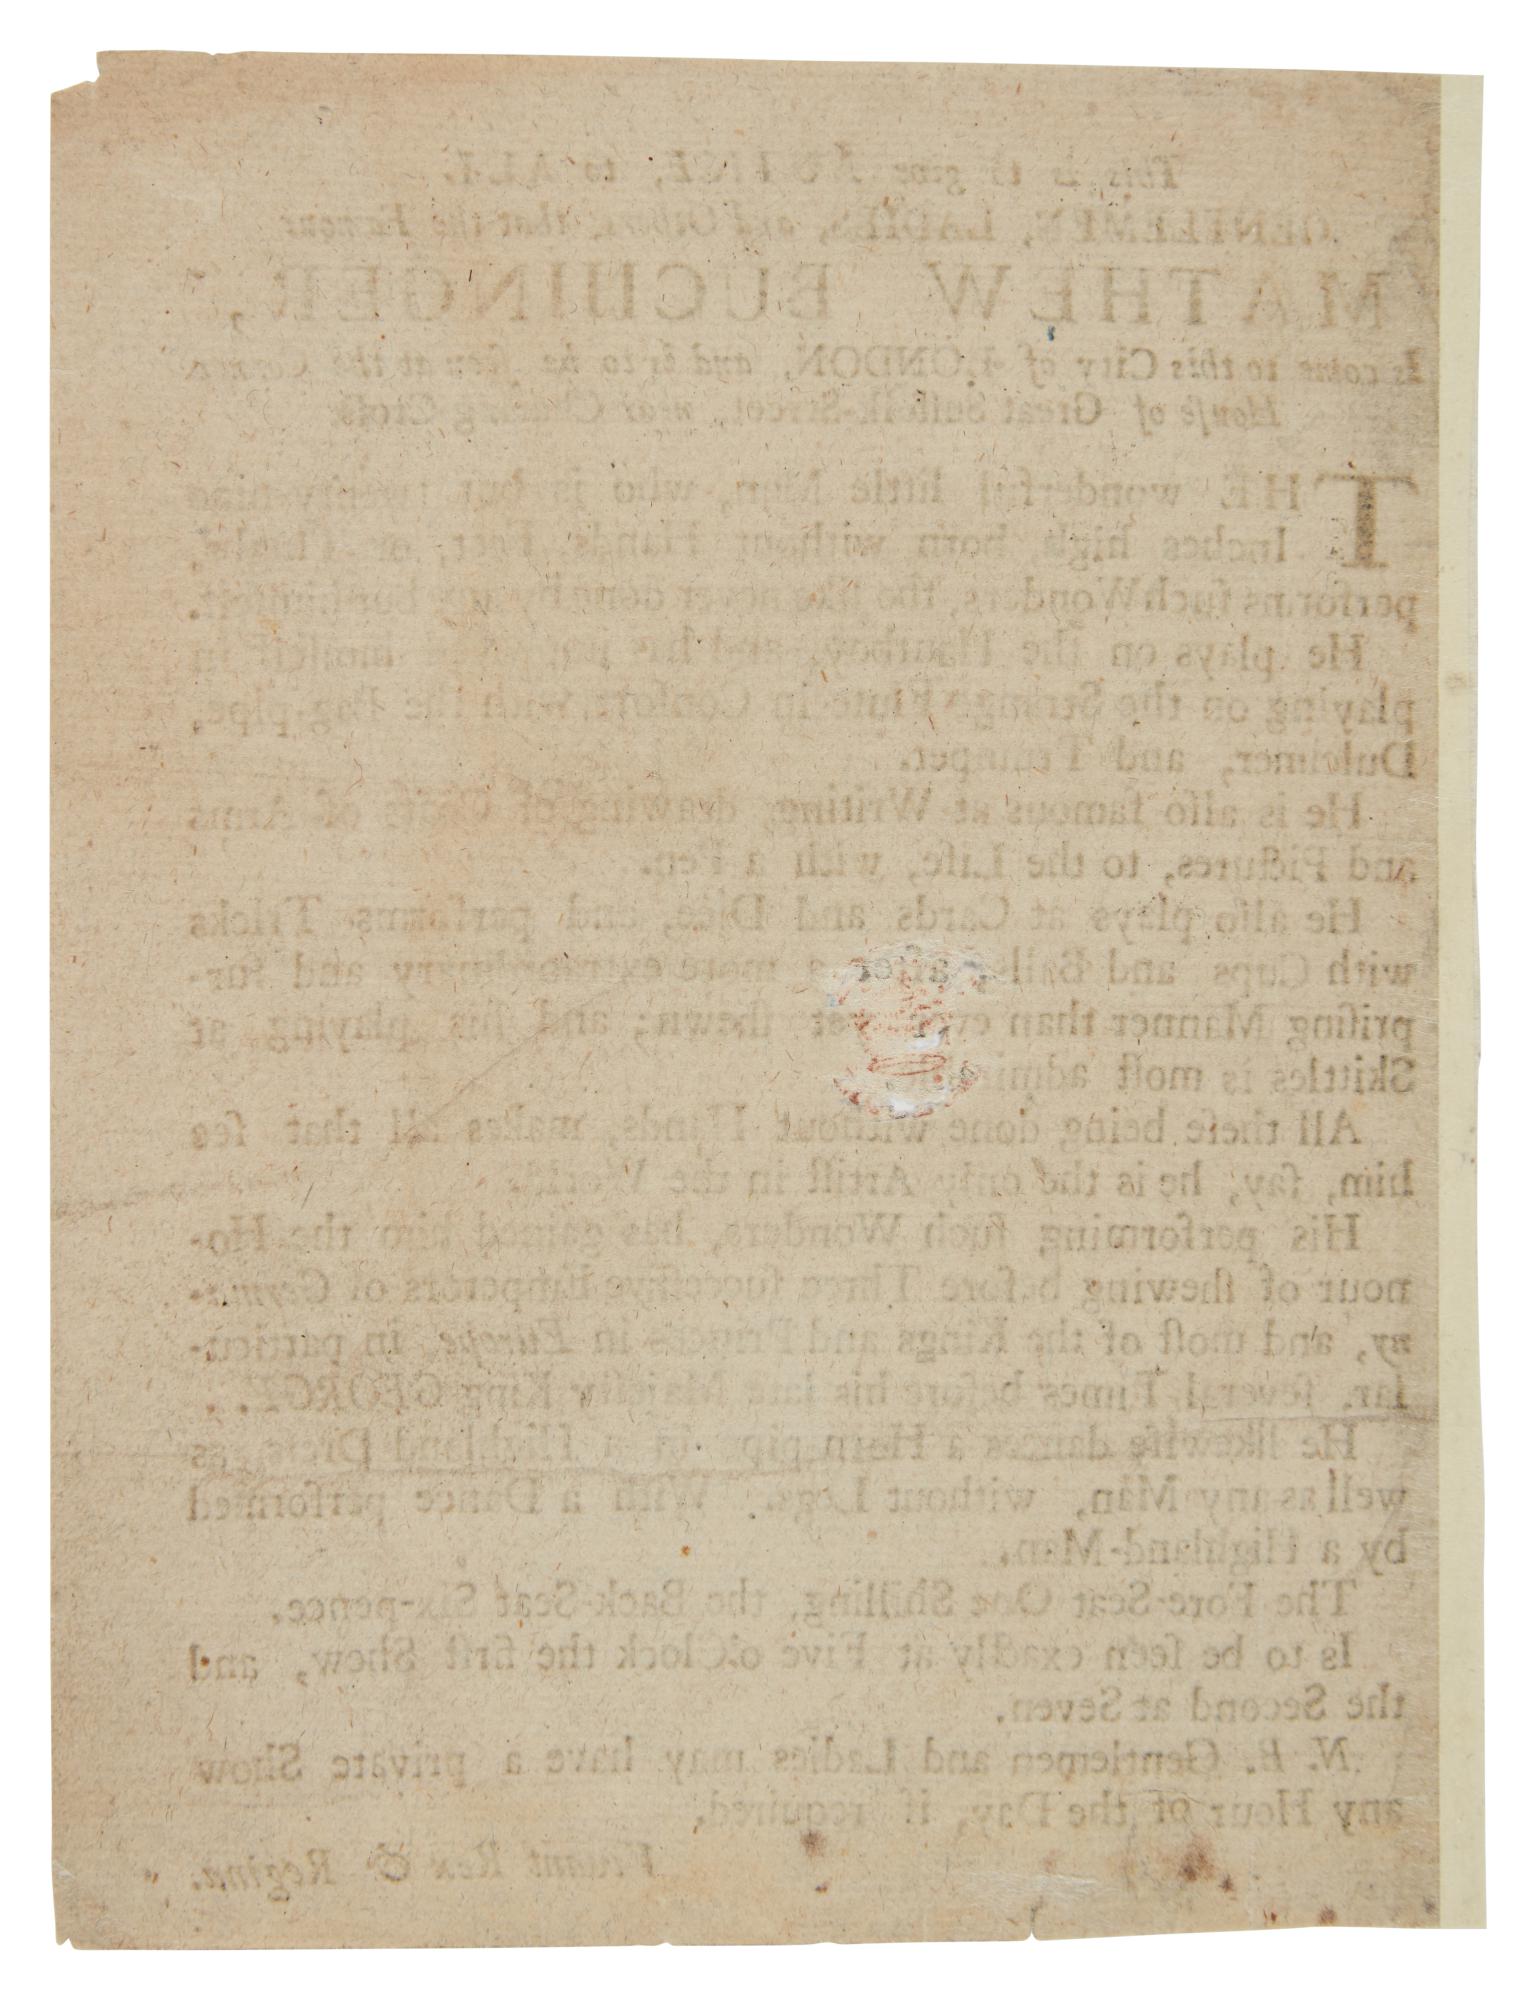 This is to give NOTICE, to ALL
GENTLEMEN, LADIES, and Others, that the Famous
MATHEW BUCHINGER,
Is come to this City of LONDON, and is to be ſeen at the Corner
Houſe of Great Suffolk-Street, near Charing Croſs.
THE wonderful little Man, who is but twenty nine
Inches high, born without Hands, Feet, or Thighs,
performs ſuch Wonders, the like never done by any but himſelf.
He plays on the Hautboy, and has himſelf in
playing on the Strange Flute in Conſort, with the Bag-pipe,
Dulcimer, and Trumpet.
He is alſo famous at Writing, drawing of Coats of Arms
and Pictures, to the Life, with a Pen.
He alſo plays at Cards and Dice, and performs Tricks
with Cups and Balls, after a more extraordinary and ſur-
priſing Manner than ever yet ſhewn; and his playing at
Skittles is moſt admirable.
All theſe being done without Hands, makes all that ſee
him, ſay, he is the only Artiſt in the World.
His performing ſuch Wonders, has gained him the Ho-
nour of ſhewing before Three ſucceſſive Emperors of Germa-
ny, and moſt of the Kings and Princes in Europe, in particu-
lar, ſeveral Times before his late Majeſty King GEORGE.
He likewiſe dances a Horn-pipe in a Highland Dreſs, as
well as any Man, without Legs. With a Dance performed
by a Highland-Man.
The Fore-Seat One Shilling, the Back-Seat Six-pence.
Is to be ſeen exactly at Five o'Clock the firſt Show, and
the Second at Seven.
N. B. Gentlemen and Ladies may have a private Show
any Hour of the Day, if required.
Vivant Rex & Regina.